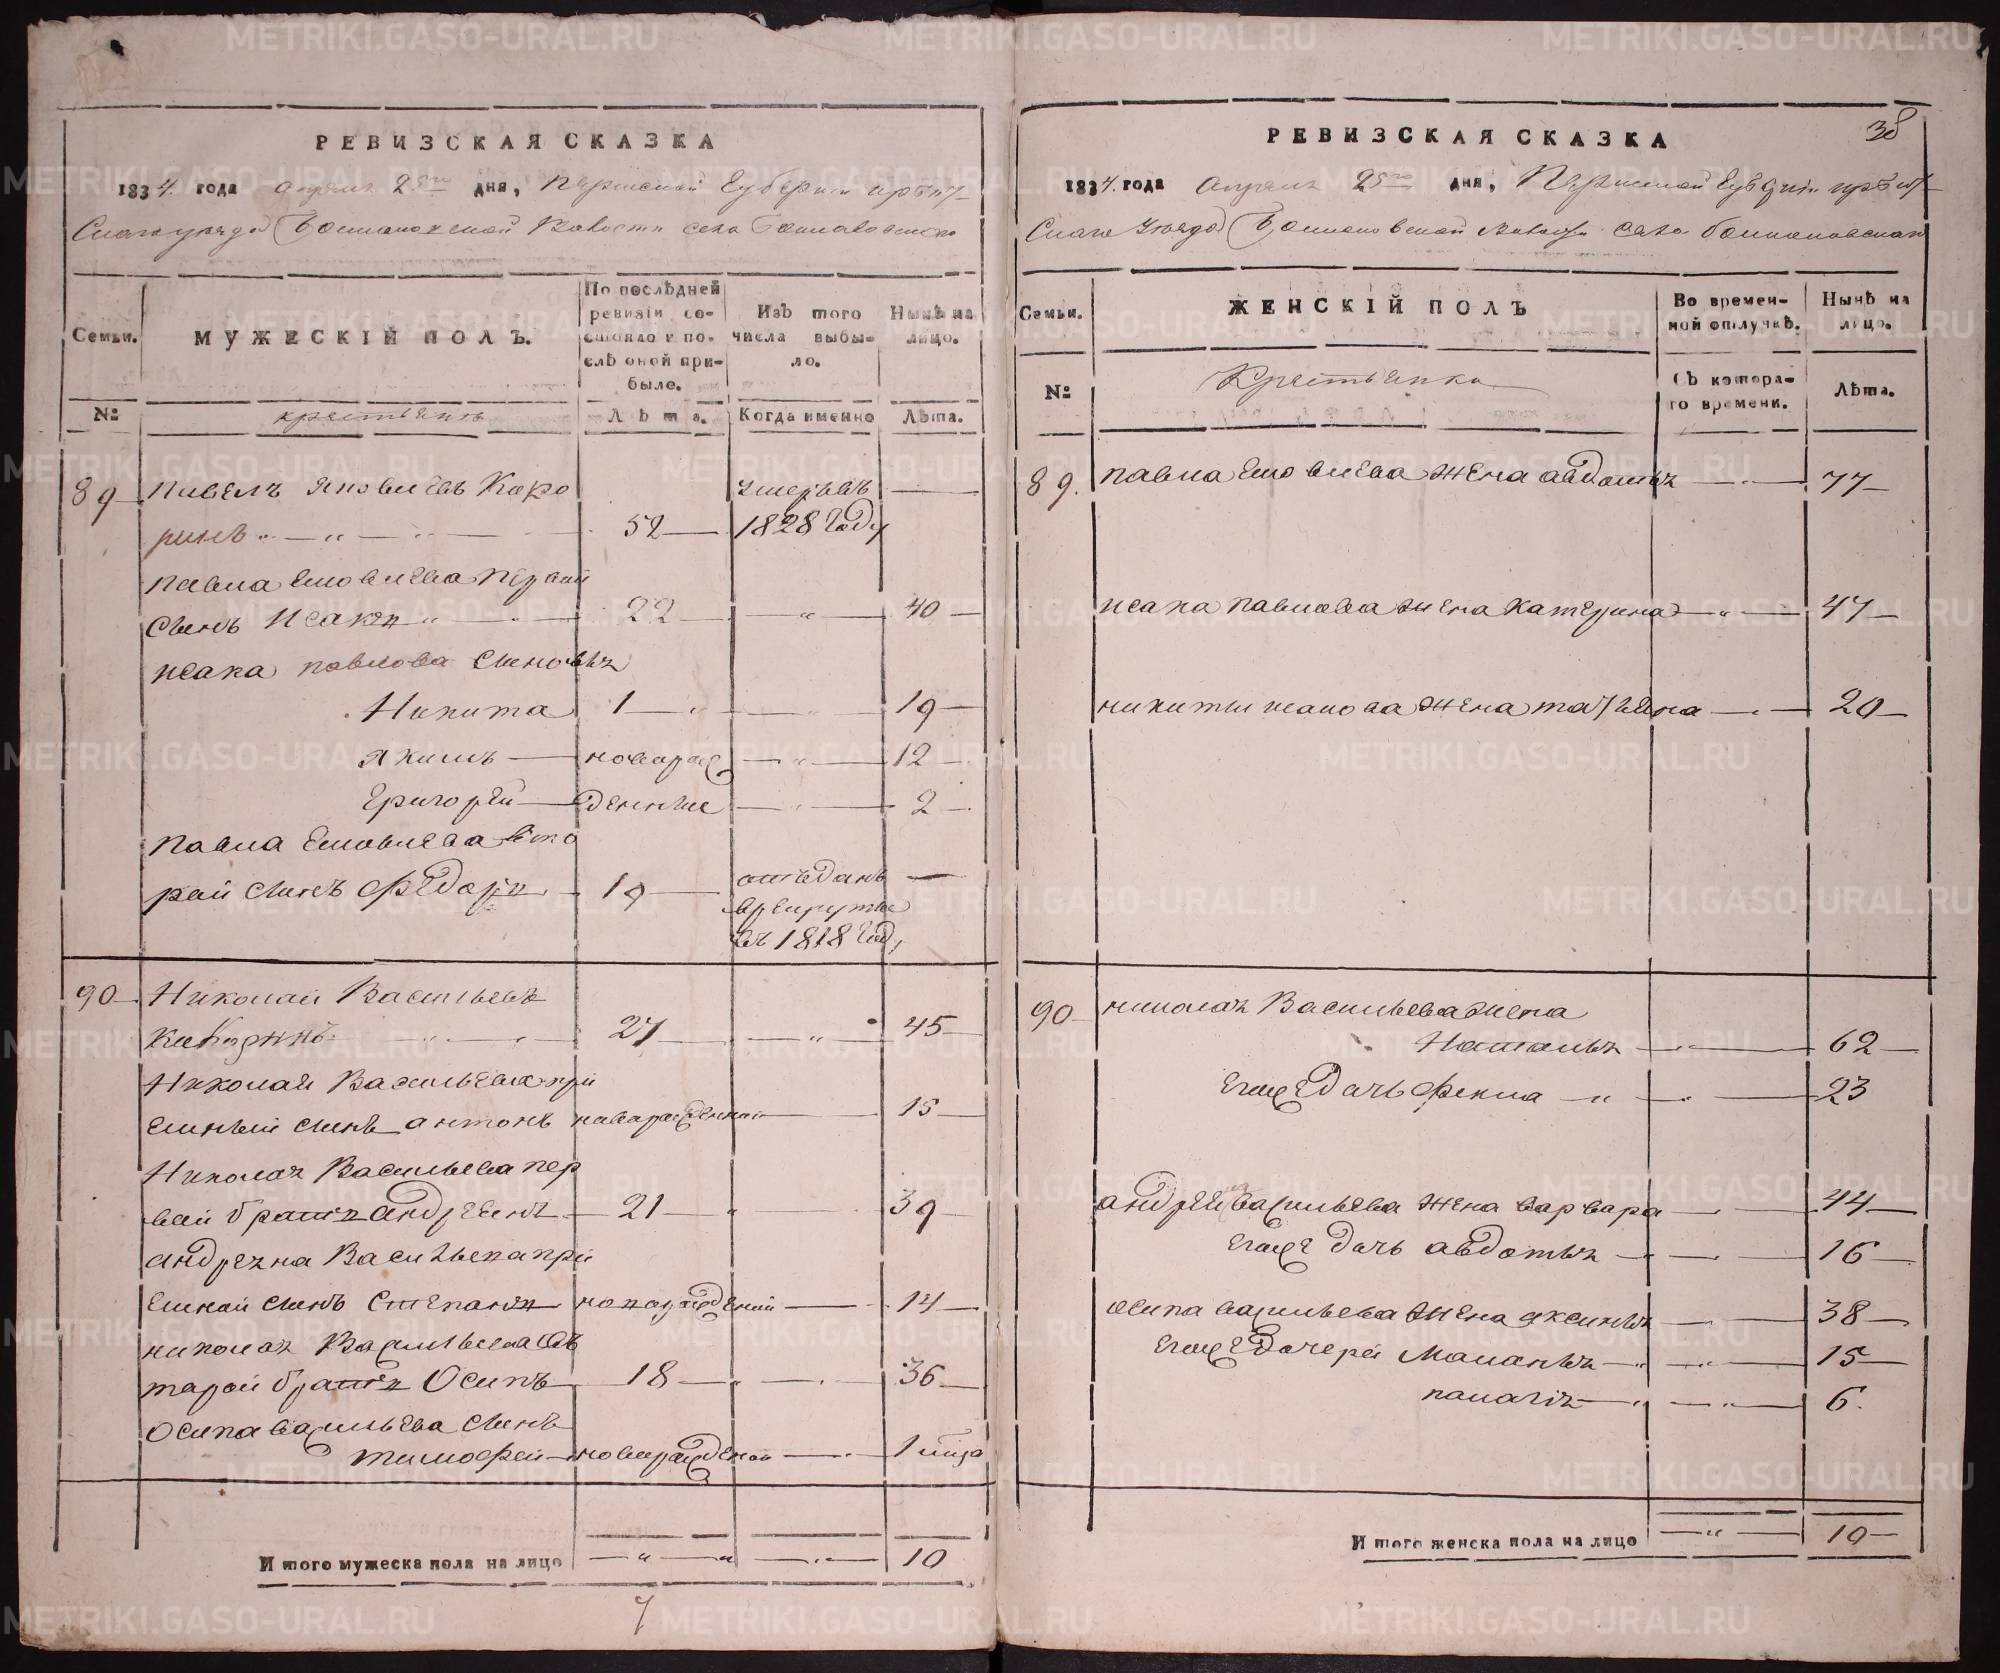 РЕВИЗСКАЯ СКАЗКА
1834. года апреля 25го дня, Пермской Губернии
Волости села
Семьи.
МУЖЕСКІЙ ПОЛЪ.
По послѣдней ревизіи состояло и послѣ оной прибыле.
Изъ того числа выбыло.
Нынѣ на лицо.
№
крестьянъ
Лѣта.
Когда именно
Лѣта.
89 Павелъ Яковлевъ Каро
ринъ 52 умеръ въ 1828 Году
Павла первой
сынъ Исакъ 22 40
исака павлова сыновья
Никита 1 19
Якимъ новорож 12
Григорей денные 2
Павла вто
рой сынъ Федоръ 19 отъданъ
в рекруты
въ 1818 Году
90 Николай Васильевъ
27 45
Николая Васильева прі
емный сынъ антонъ новорожденной 15
Николая Васильева пер
вой братъ андрей 21 39
андреяна Васильева прі
емной сынъ Степанъ новорожденой 14
николая Васильева в
торой братъ Осипъ 18 36
Осипа васильева сынъ
тимофей новорожденой 1
Итого мужеска пола на лицо 10
РЕВИЗСКАЯ СКАЗКА
1834. года апреля 25го дня, Пермской Губерніи
Уезда волости села
Семьи.
ЖЕНСКІЙ ПОЛЪ
Во временной отлучкѣ.
Нынѣ на лицо.
№
Крестьянка
Съ котораго времени.
Лѣта.
89. павла жена авдотья 77
исака павлова жена катерина 47
никиты исакова жена татьяна 20
90 николая Васильева жена
Наталья 62
его же дочь фекла 23
андрея васильева жена варвара 44
его же дочь авдотья 16
осипа васильева жена аксинья 38
его же дочерей Маланья 15
палагія 6.
Итого женска пола на лицо 10
METRIKI.GASO-URAL.RU